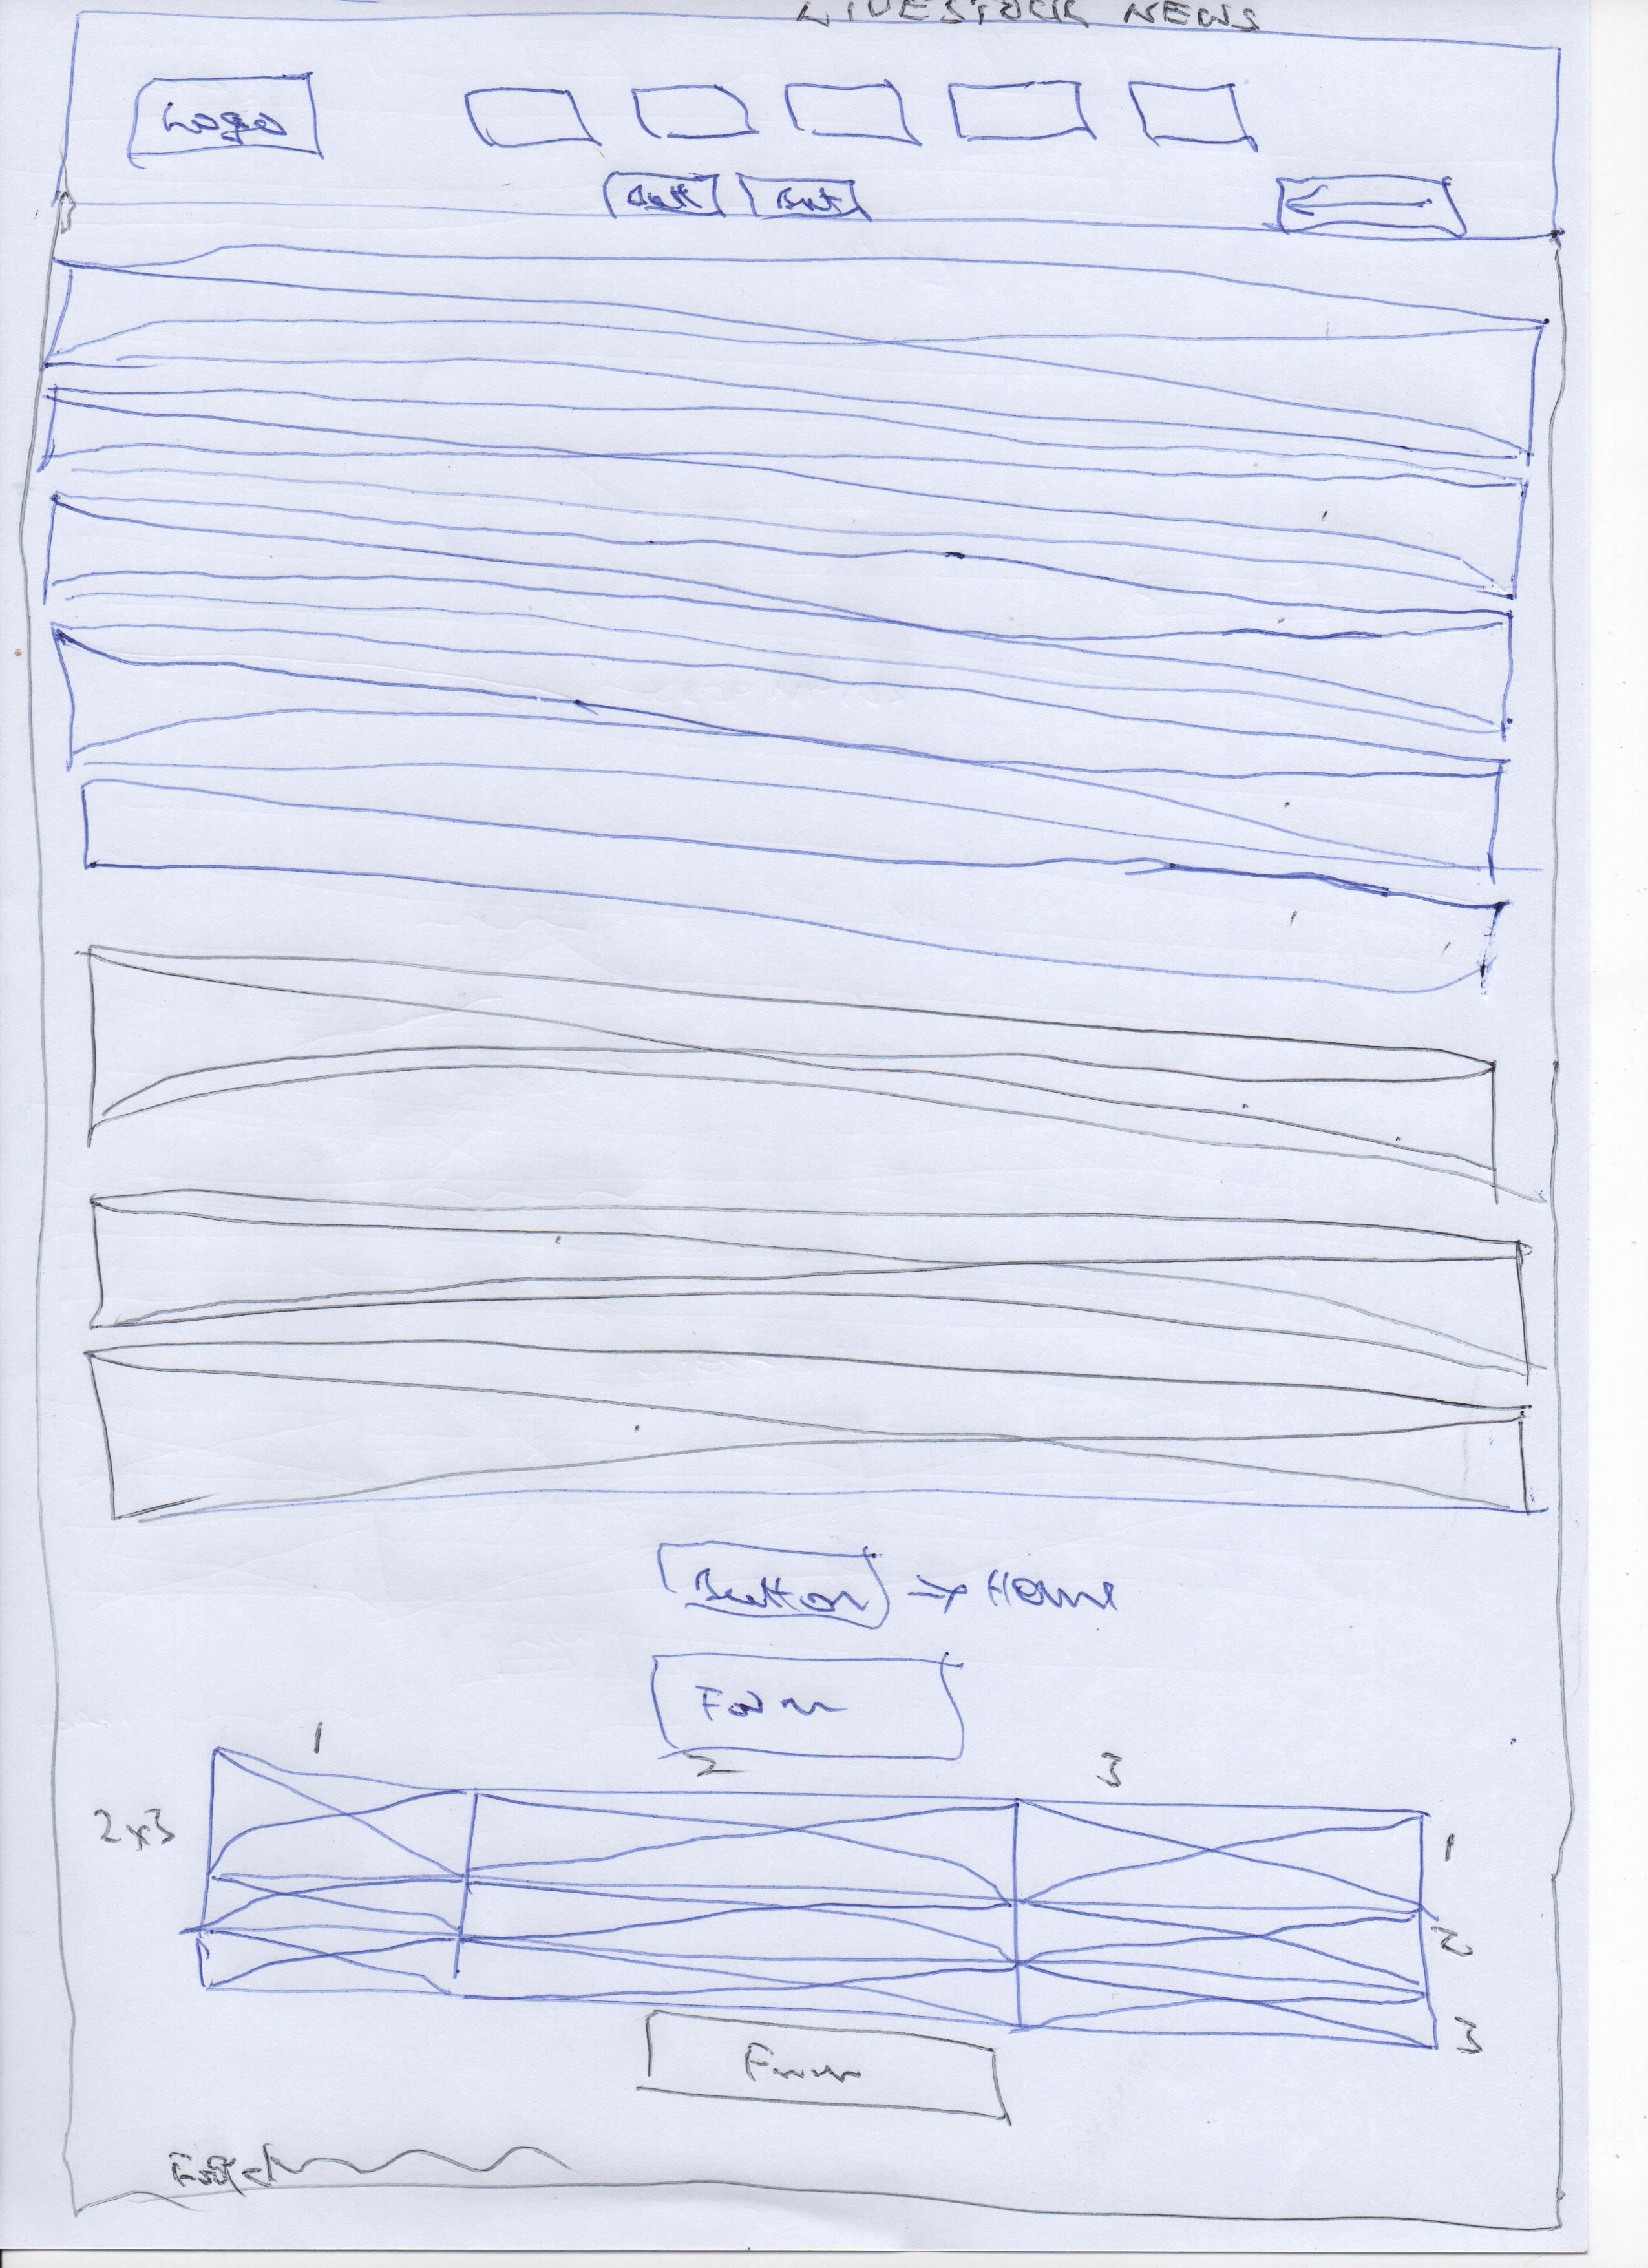 LIVESTOCK NEWS
Logo
Butt But
Button → Home
Form
1 2 3
2x3
1
2
3
Form